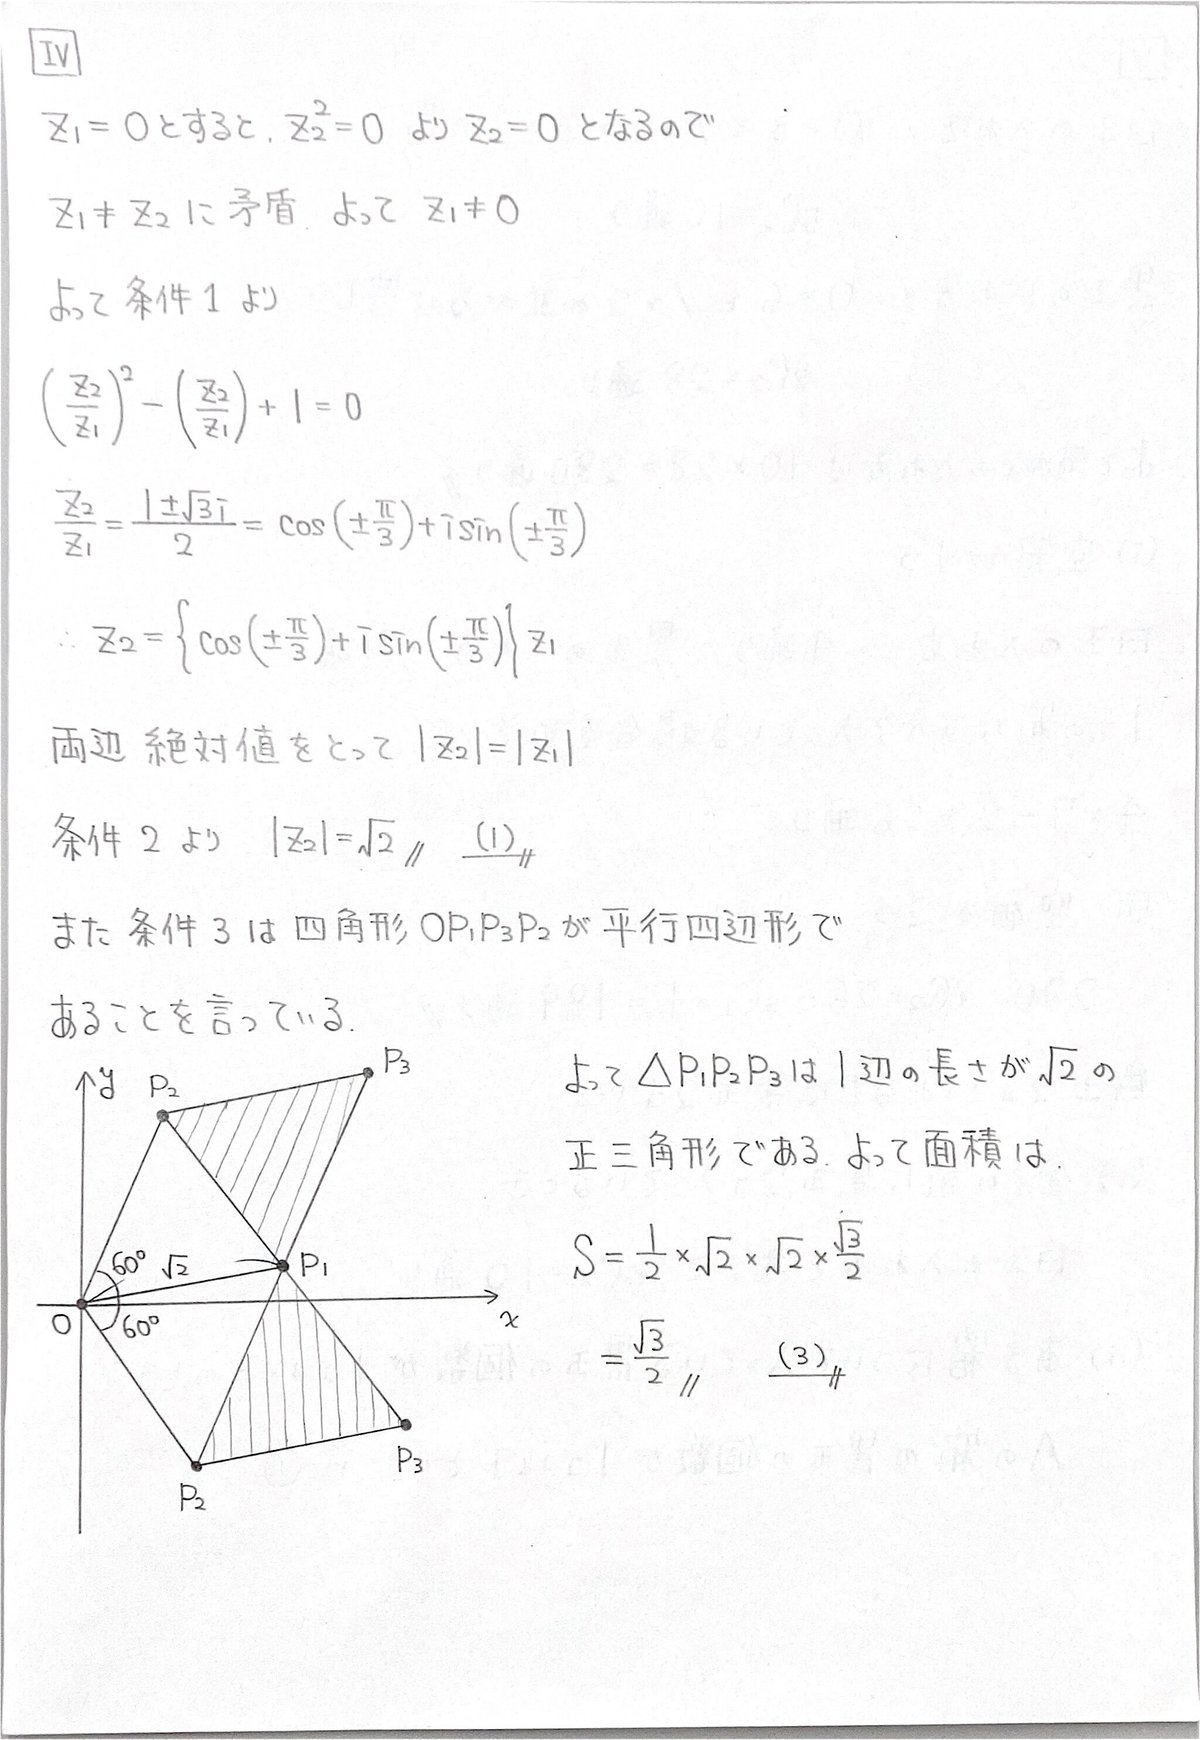 IV
z₁ = 0 とすると, z₂² = 0 より z₂ = 0 となるので
z₁ ≠ z₂ に矛盾. よって z₁ ≠ 0
よって 条件 1 より
(z₂/z₁)² − (z₂/z₁) + 1 = 0
z₂/z₁ = (1±√3i)/2 = cos(±π/3) + i sin(±π/3)
∴ z₂ = {cos(±π/3) + i sin(±π/3)} z₁
両辺 絶対値をとって |z₂| = |z₁|
条件 2 より |z₂| = √2 // (1)//
また 条件 3 は 四角形 OP₁P₃P₂ が 平行四辺形で
あることを言っている.
よって △P₁P₂P₃ は 1 辺の長さが √2 の
正三角形である. よって面積は.
S = 1/2 × √2 × √2 × √3/2
= √3/2 // (3)//
y
P₂
P₃
60°
√2
P₁
O
60°
x
P₂
P₃